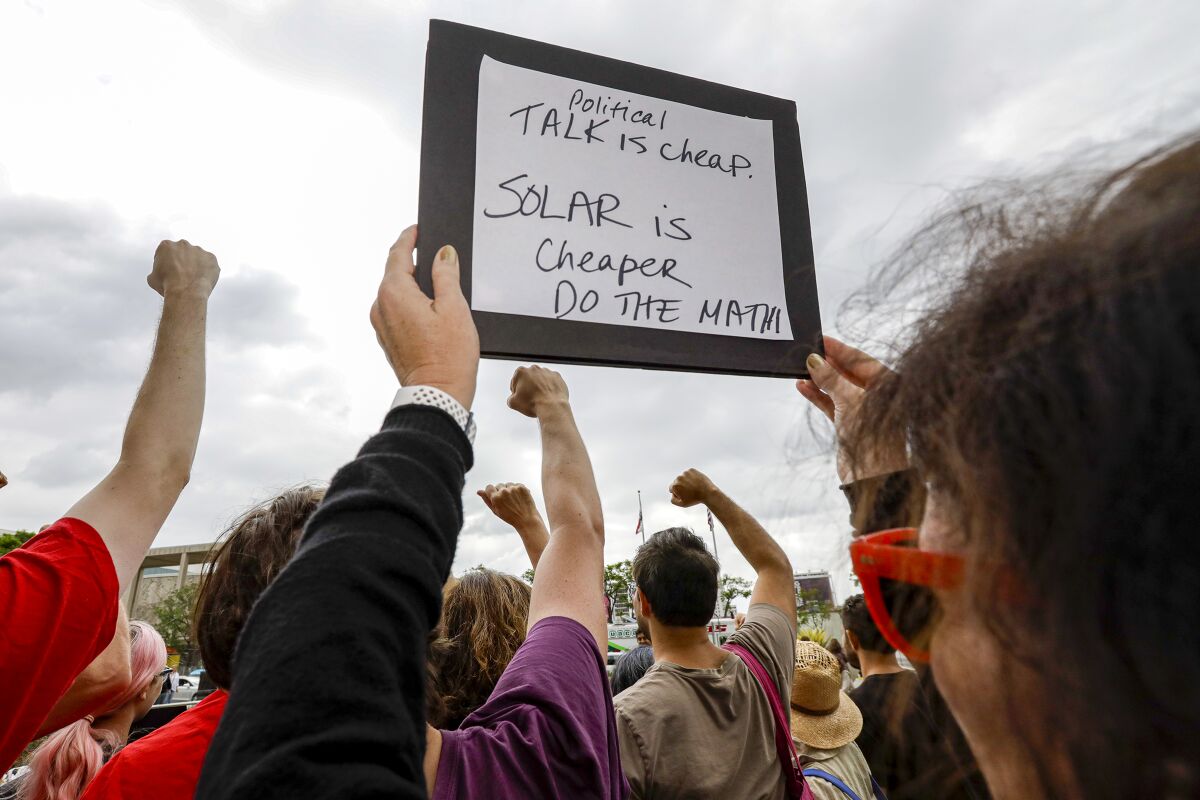 Political
TALK is cheap.
SOLAR is
Cheaper
DO THE MATH